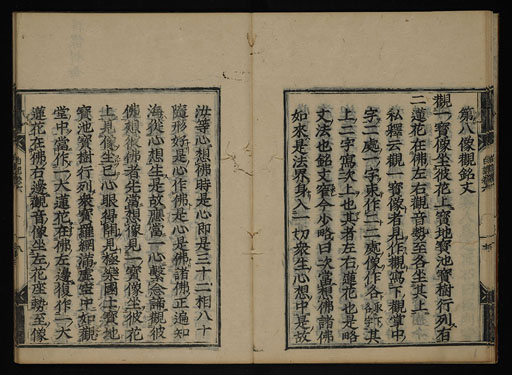 第八像觀銘文
觀一寶像坐彼花上寶地寶池寶樹行列有
二蓮花在佛左右觀音勢至各坐其上
私釋云觀一寶像者見作觀寫下觀掌中
字二處一字東作二二處像作各其
上二字寫次上也其者左右蓮花也是略
文法也銘文窄今少略曰次當想佛諸佛
如來是法界身入一切衆生心想中是故
汝等心想佛時是心即是三十二相八十
隨形好是心作佛是心是佛諸佛正遍知
海從心想生是故應當一心繫念諦觀彼
佛想彼佛者先當想像見一寶像坐彼花
上見像坐已心眼得開見極樂國土寶地
寶池寶樹行列衆寶羅網滿虛空中如觀
掌中當作一大蓮花在佛左邊復作一大
蓮花在佛右邊觀音像坐左花座勢至像